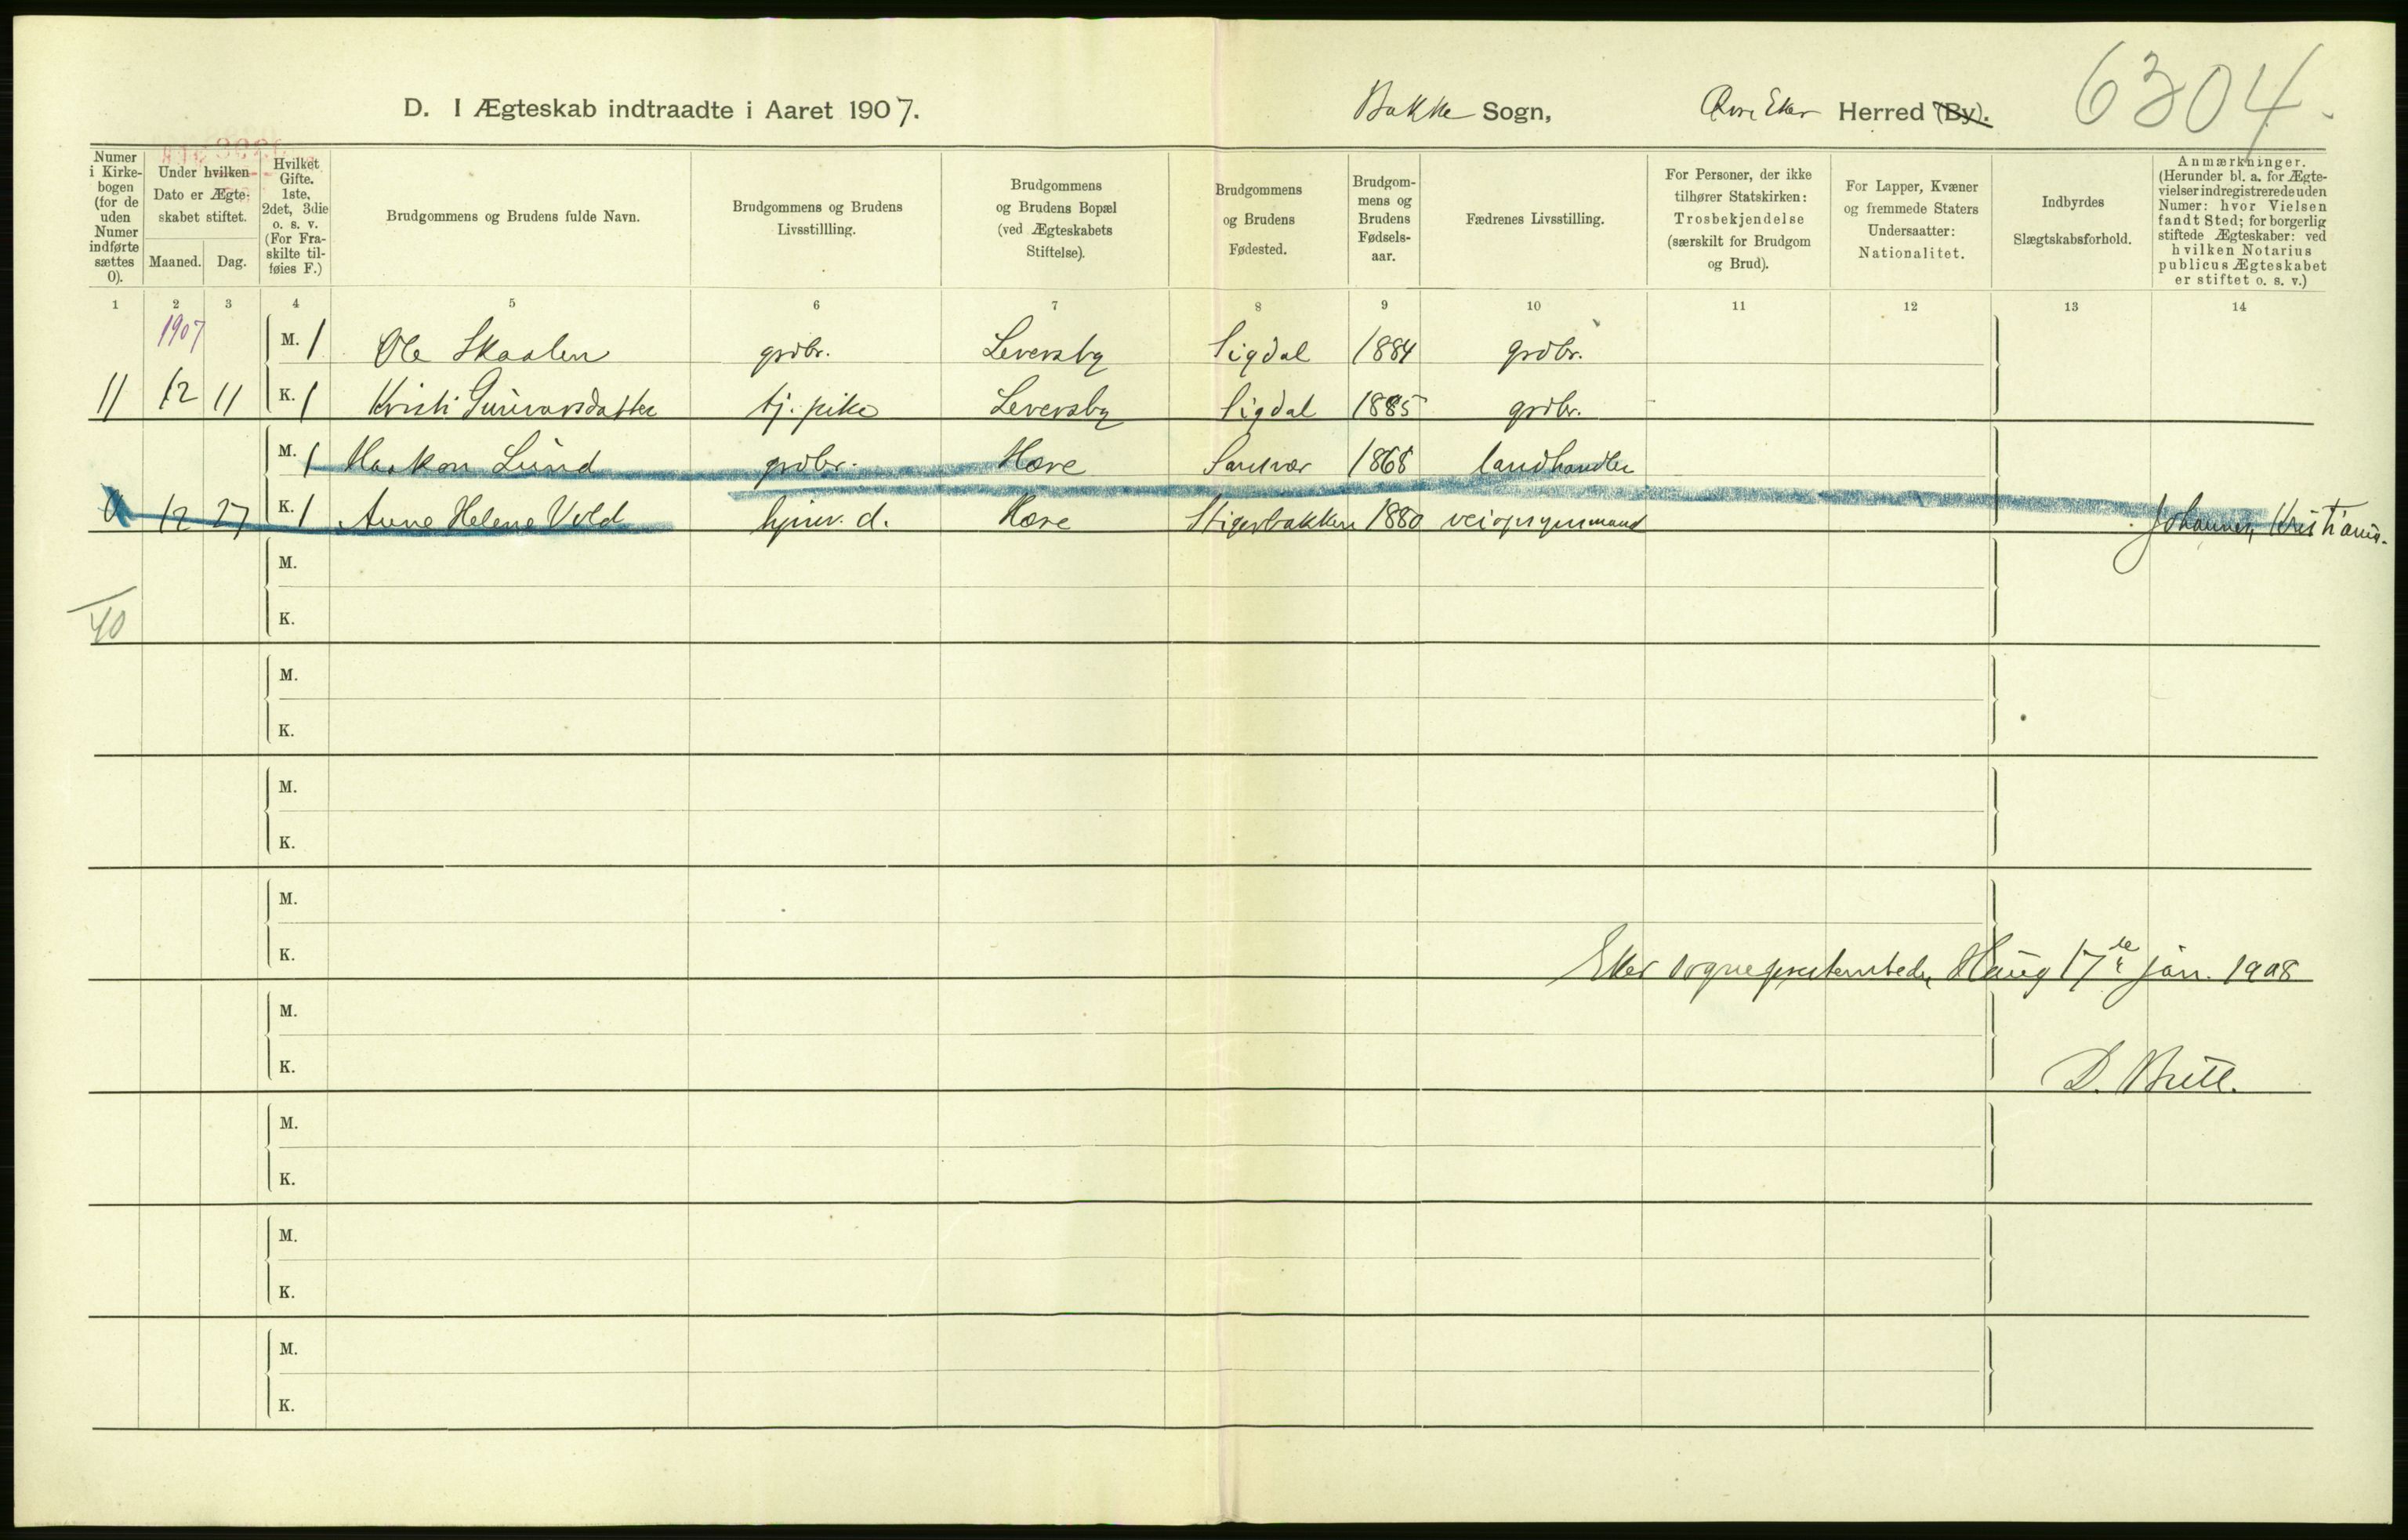 6304.
D. I Ægteskab indtraadte i Aaret 1907. Bakke Sogn, Øvre Eker Herred (By).
Numer i Kirkebogen (for de uden Numer indførte sættes 0).
Under hvilken Dato er Ægteskabet stiftet.
Maaned. Dag.
Hvilket Gifte. 1ste, 2det, 3die o. s. v. (For Fraskilte tilføies F.)
Brudgommens og Brudens fulde Navn.
Brudgommens og Brudens Livsstillling.
Brudgommens og Brudens Bopæl (ved Ægteskabets Stiftelse).
Brudgommens og Brudens Fødested.
Brudgommens og Brudens Fødselsaar.
Fædrenes Livsstilling.
For Personer, der ikke tilhører Statskirken: Trosbekjendelse (særskilt for Brudgom og Brud).
For Lapper, Kvæner og fremmede Staters Undersaatter: Nationalitet.
Indbyrdes Slægtskabsforhold.
Anmærkninger. (Herunder bl. a. for Ægtevielser indregistrerede uden Numer: hvor Vielsen fandt Sted; for borgerlig stiftede Ægteskaber: ved hvilken Notarius publicus Ægteskabet er stiftet o. s. v.)
1 2 3 4 5 6 7 8 9 10 11 12 13 14
1907
M. 1 Ole Skaalen grdbr. Leversby Sigdal 1884 grdbr.
11 12 11 K. 1 Kristi Gunvorsdatter tj. pike Leversby Sigdal 1885 grdbr.
M. 1 Haakon Lund grdbr. Hære Sandsvær 1868 landhandler
0 12 27 K. 1 Anne Helene Vold hjmv. d. Hære Stigerbakken 1880 veiopsynsmand Johannes, Kristiania.
M.
K.
40
M.
K.
M.
K.
M.
K.
Eker sogneprestembede, Haug 17de jan. 1908
M.
K.
D. Bull.
M.
K.
M.
K.
M.
K.